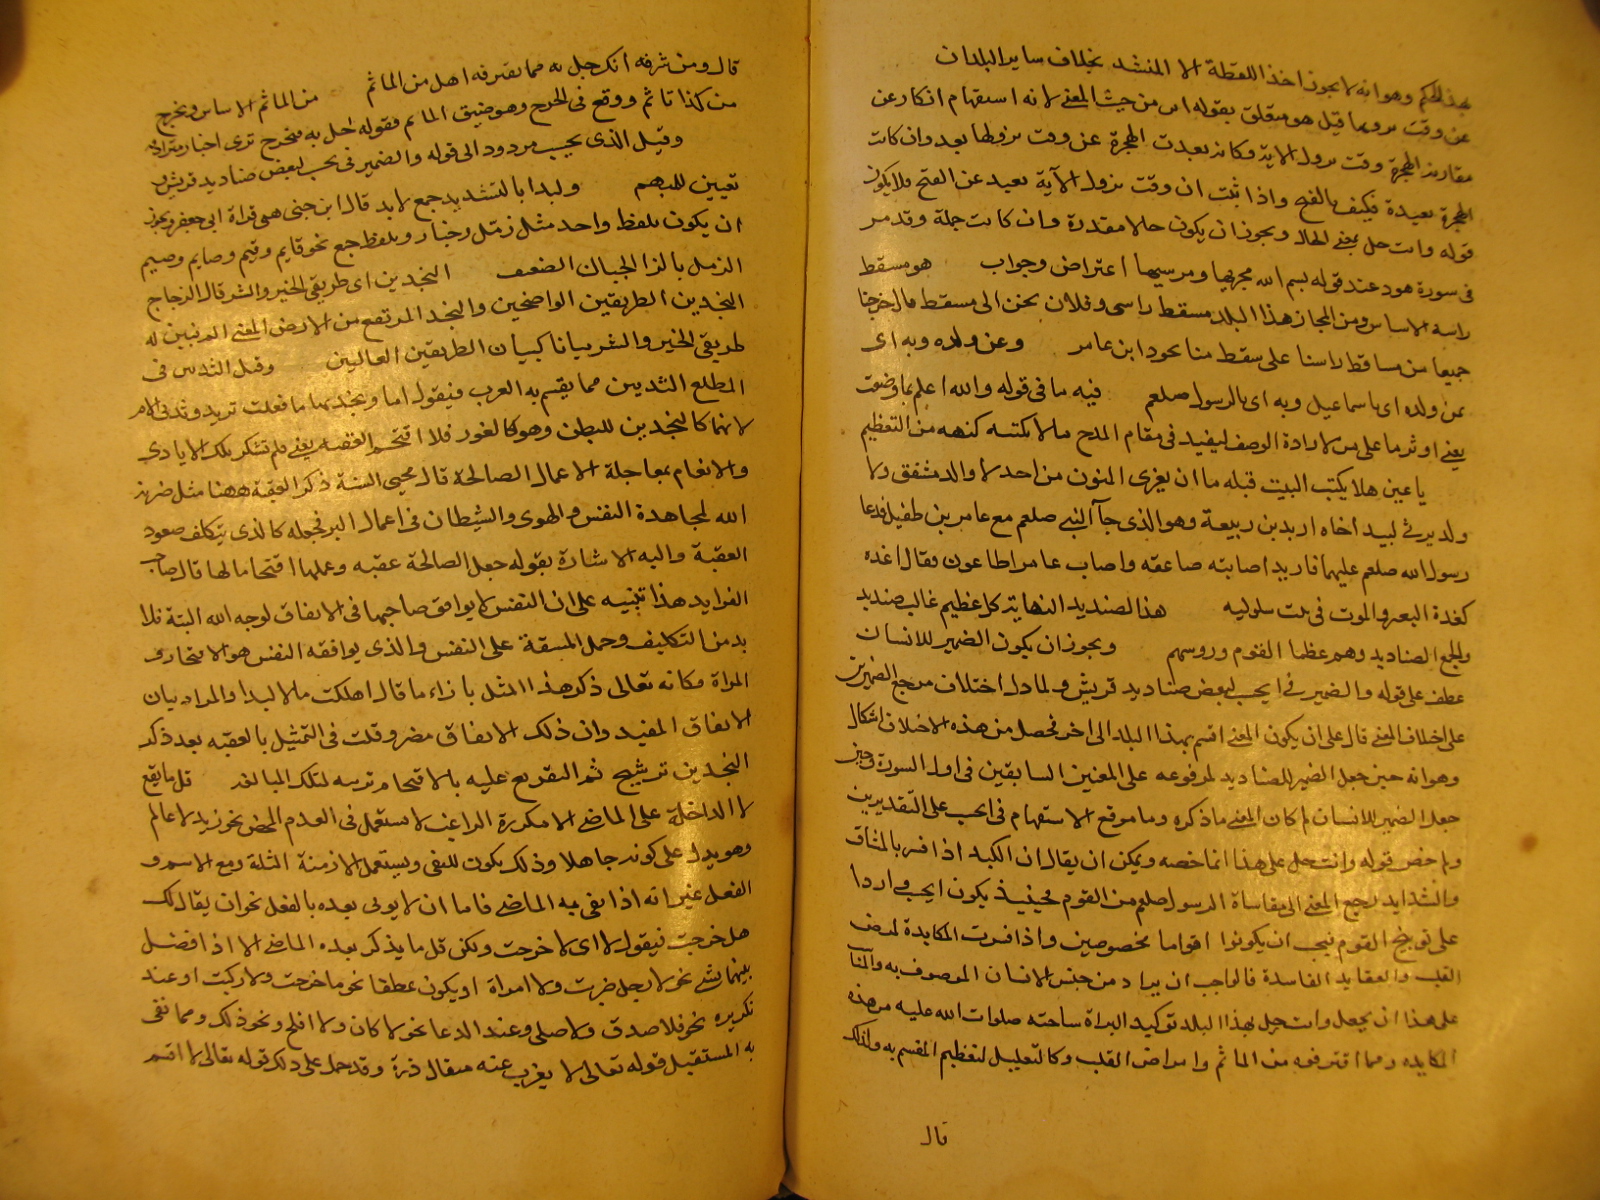 بهذا الحكم وهو انه لا يجوز اخذ اللقطة الا لمنشد بخلاف ساير البلدان
عن وقت نزولها قيل هو متعلق بقوله اين من حيث المعنى لانه استفهام انكار عن
مقارنة الهجرة وقت نزول الاية وكانه بعدت الهجرة عن وقت نزولها بعد وان كانت
الهجرة بعيدة فكيف بالفتح واذا ثبت ان وقت نزول الآية بعيد عن الفتح فلا يكون
قوله وانت حل بمعنى الحال ويجوز ان يكون حالا مقدرة وان كانت جملة وقد مر
فى سورة هود عند قوله بسم الله مجريها ومرسيها اعتراض وجواب هو مسقط
راسه الاساس ومن المجاز هذا البلد مسقط راسى وفلان يحن الى مسقط قال خرجنا
جميعا من مساقط راسنا على سقط منا بجود ابن عامر وعن ولده وبه اى
عن ولده اى باسماعيل وبه اى بالرسول صلعم فيه ما فى قوله والله اعلم بما وضعت
يعنى اوثر ما على من لارادة الوصف ليفيد فى مقام المدح ما لا يكتنه كنهه من التعظيم
يا عين هلا بكيت البيت قبله ما ان يعرى المنون من احد لا والد مشفق ولا
ولد يرثى لبيد اخاه اربد بن ربيعة وهو الذى جآ النبى صلعم مع عامر بن طفيل فدعا
رسول الله صلعم عليهما فاربد اصابته صاعقه واصاب عامرا طاعون فقال اغده
كغدة البعير والموت فى بيت سلوليه هذا الصنديد النهاية كل عظيم غالب صنديد
والجمع الصناديد وهم عظما القوم وروسهم ويجوز ان يكون الضمير للانسان
عطف على قوله والضمير فى ايحسب لبعض صناديد قريش ولما دل اختلاف مرجع الضميرين
على اختلاف المعنى قال على ان يكون المعنى اقسم بهذا البلد الى اخر فحصل من هذه الاختلاف اشكال
وهو انه حين جعل الضمير للصناديد لم فوعه على المعنيين السابقين فى اول السورة وحين
جعل الضمير للانسان لم كان المعنى ما ذكره وما موقع الاستفهام فى ايحسب على التقديرين
ولم خص قوله وانت حل على هذا انما خصه ويمكن ان يقال ان الكبد اذا فسر بالمشاق
والشدايد يرجع المعنى الى مقاساة الرسول صلعم من القوم فحينيذ يكون ايحسب واردا
على توبيخ القوم فيجب ان يكونوا اقواما مخصوصين واذا فسرت المكابدة لمرض
القلب والعقايد الفاسدة فالواجب ان يراد من جنس الانسان الموصوف به والمنا
على هذا ان يجعل وانت حل بهذا البلد توكيد البراة ساحته صلوات الله عليه من هذه
المكابده ومما اقترفوه من الماثم وامراض القلب وكالتعليل لتعظيم المقسم به ولذلك
قال
قال ومن شرفه انك حل به مما يقترفه اهل من الماثم من الماثم الاساس وتحرج
من كذا تاثم ووقع فى الحرج وهو ضيق الماثم فقوله احل به متحرج ترى اخبار مترادفه
وقيل الذى يحسب مردود الى قوله والضمير فى يحسب لبعض صناديد قريش
تعيين للمبهم ولبدا بالتشديد جمع لابد قال ابن جنى هى قراة ابى جعفر ويجوز
ان يكون بلفظ واحد مثل زمّل وبلفظ جمع نحو قايم وقيم وصايم وصيم
الزمل بالزا الجبان الضعيف النجدين اى طريقى الخير والشر قال الزجاج
النجدين الطريقين الواضحين والنجد المرتفع من الارض المعنى الم نبين له
طريقى الخير والشر بيانا كبيان الطريقين العاليين وقيل الثديين فى
المطلع الثديين مما يقسم به العرب فيقول اما ونجديها ما فعلت تريد وثدى الام
لانهما كالنجدين للبطن وهو كالغور فلا اقتحم العقبه يعنى فلم تشكر تلك الايادى
والانعام بمعاجلة الاعمال الصالحة قال محيى السنة ذكر العقبة ههنا مثل ضربه
الله لمجاهدة النفس والهوى والشيطان فى اعمال البر فجعله كالذى يتكلف صعود
العقبة واليه الاشارة بقوله جعل الصالحة عقبه وعملها اقتحاما لها قال صاحب
الفرايد هذا تنبيه على ان النفس لا يوافق صاحبها فى الانفاق لوجه الله البتة فلا
بد من التكليف وحمل المشقة على النفس والذى يوافقه النفس هو الافتخار و
المراة فكانه تعالى ذكر هذا المثل بازاء ما قال اهلكت مالا لبدا والمراد بيان
الانفاق المفيد وان ذلك الانفاق مضر وقلت فى التمثيل بالعقبه بعد ذكر
النجدين ترشيح ثم التقريع عليه بالاقتحام تربيه لتلك المبالغه قل ما يقع
لا الداخلة على الماضى الا مكررة الراغب لا يستعمل فى العدم المحض نحو زيد لا عالم
وهو يدل على كونه جاهلا وذلك يكون للنفى ويستعمل الازمنة الثلثة ومع الاسم و
الفعل غير انه اذا نفى به الماضى فاما ان لا يوتى بعده بالفعل نحو ان يقال لك
هل خرجت فيقول لا اى لا خرجت ولكن قل ما يذكر بعده الماضى الا اذا فصل
بينهما بشى نحو لا رجل ضربت ولا امراة او يكون عطفا نحو ما خرجت ولا ركبت او عند
تكريره نحو فلا صدق ولا صلى وعند الدعا نحو لا كان ولا افلح ونحو ذلك ومما نفى
به المستقبل قوله تعالى لا يعزب عنه مثقال ذرة وقد حمل على ذلك قوله تعالى لا اقسم